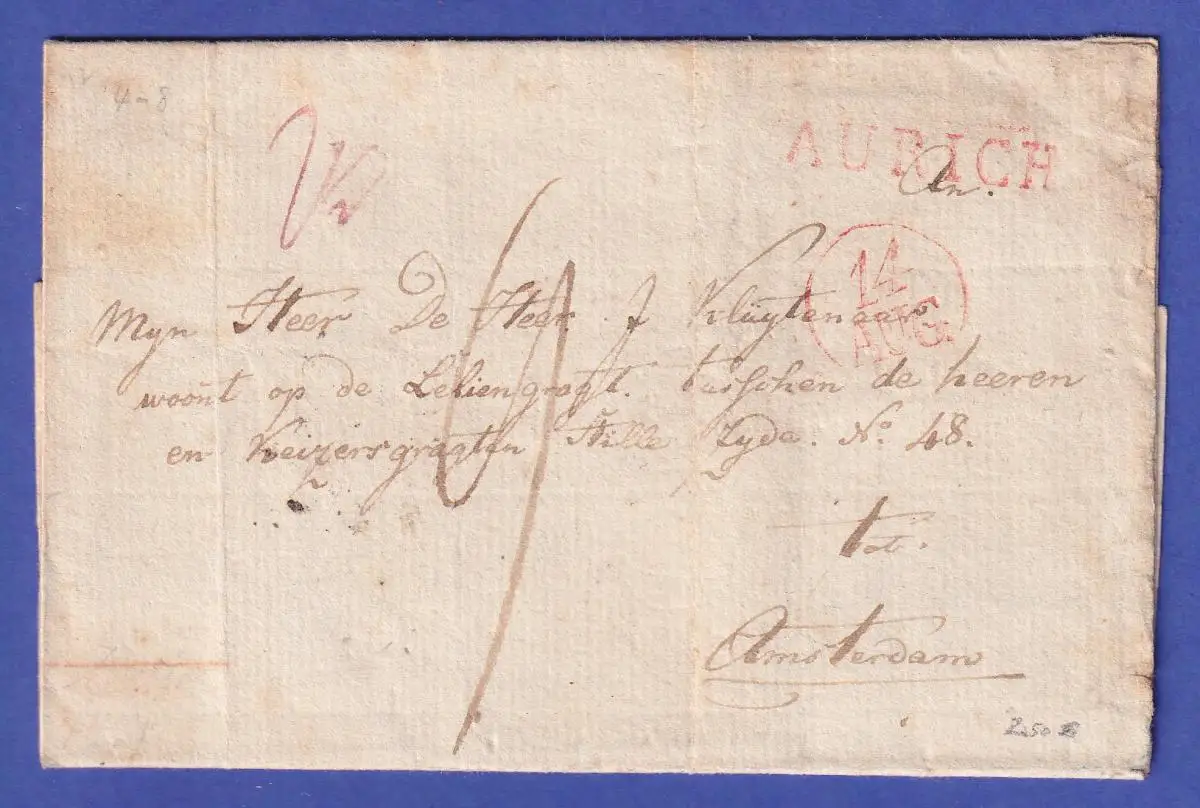 4-8
AURICH
An.
14
AUG.
Myn Heer De Heer J Kluytenaar
woont op de Leliengragt. tusschen de heeren
en Keizersgragten Stille Zyde. No. 48.
tot.
Amsterdam
250